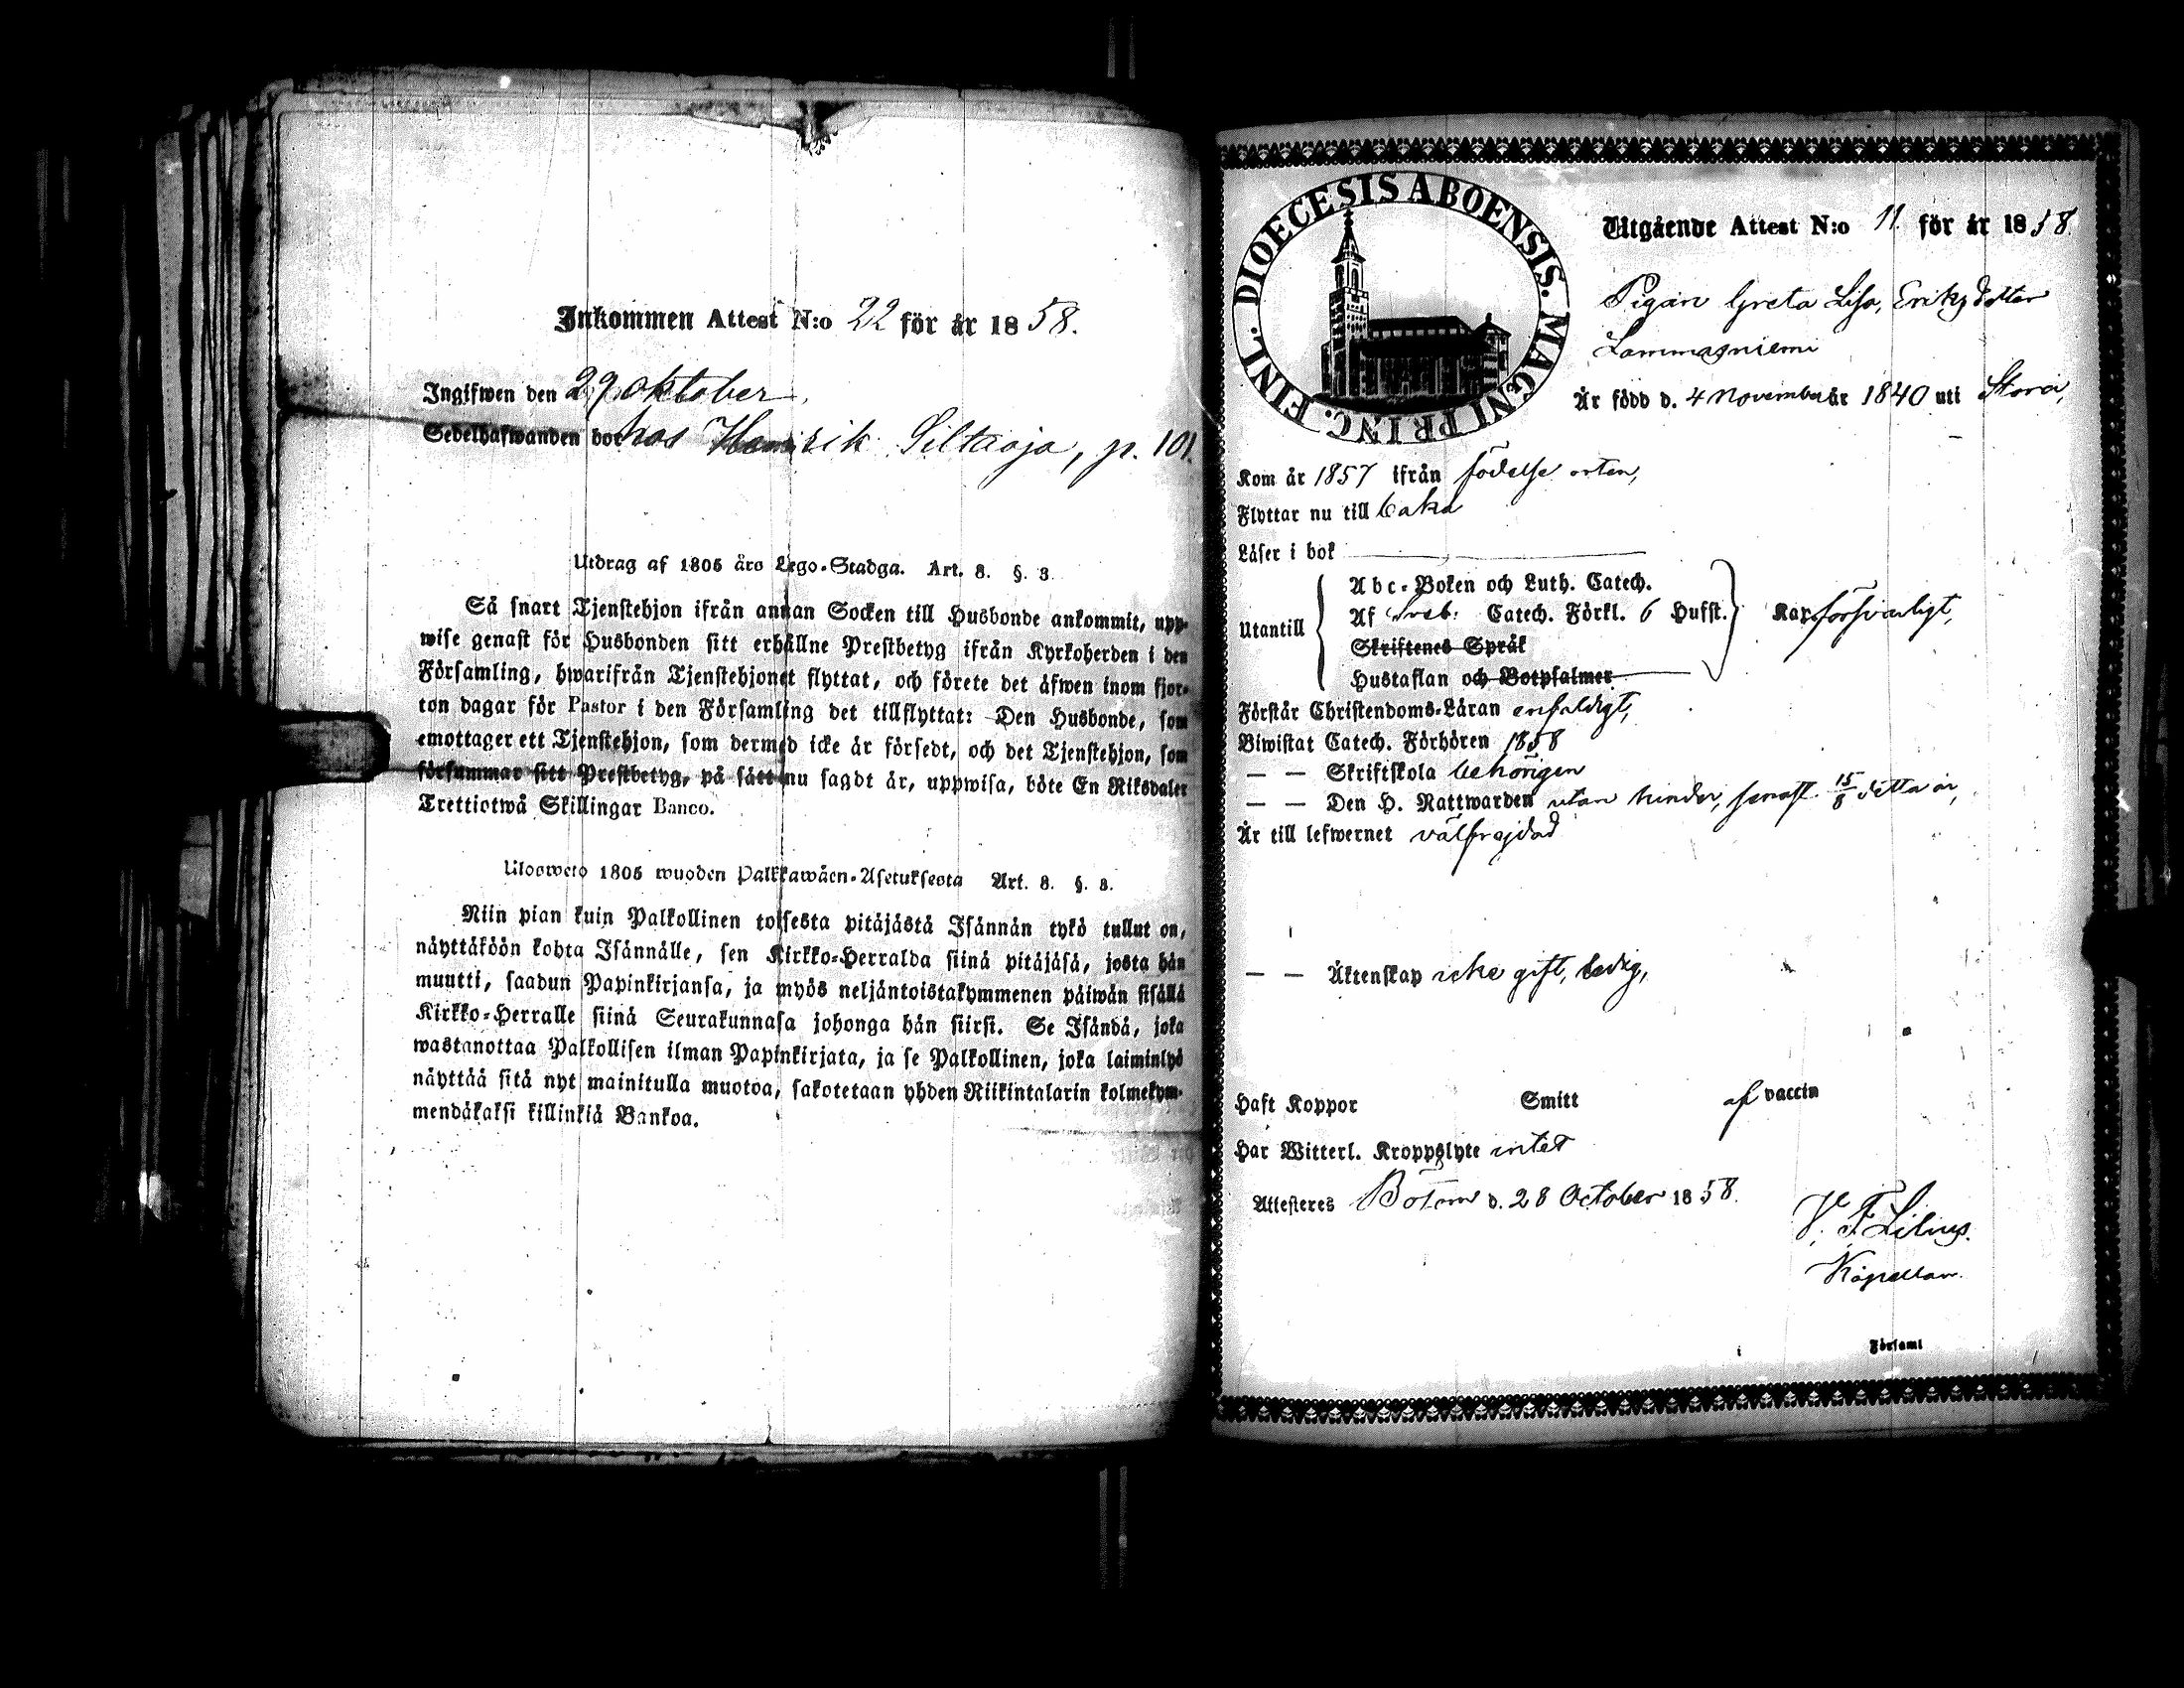 Inkommen Attest N:o 22 för år 1858.
Ingifwen den 29 oktober.
Sedelhafwanden bor hos Henrik Siltaoja, p. 101.
Utdrag af 1805 års Lego-Stadga. Art. 8. §. 3.
Så snart Tjenstehjon ifrån annan Socken till Husbonde ankommit, upp-
wise genast för Husbonden sitt erhållne Prestbetyg ifrån Kyrkoherden i den
Församling, hwarifrån Tjenstehjonet flyttat, och förete det äfwen inom fjor-
ton dagar för Pastor i den Församling det tillflyttat: Den Husbonde, som
emottager ett Tjenstehjon, som dermed icke är försedt, och det Tjenstehjon, som
försummar sitt Prestbetyg, på sätt nu sagdt är, uppwisa, böte En Riksdaler
Trettiotwå Skillingar Banco.
Ulosweto 1805 wuoden Palkkawäen-Asetuksesta Art. 8. §. 3.
Niin pian kuin Palkollinen toisesta pitäjästä Isännän tykö tullut on,
näyttäköön kohta Isännälle, sen Kirkko-Herralda siinä pitäjäsä, josta hän
muutti, saadun Papinkirjansa, ja myös neljäntoistakymmenen päiwän sisällä
Kirkko-Herralle siinä Seurakunnasa johonga hän siirsi. Se Isändä, joka
wastanottaa Palkollisen ilman Papinkirjata, ja se Palkollinen, joka laiminlyö
näyttää sitä nyt mainitulla muotoa, sakotetaan yhden Riikintalarin kolmekym-
mendäkaksi killinkiä Bankoa.
DIOECESIS ABOENSIS. MAGNI PRINC. FINL.
Utgående Attest N:o 11. för år 1858.
Pigan Greta Lisa, Eriksdotter
Lammasniemi
Är född d. 4 November år 1840 uti Storå,
Kom år 1857 ifrån födelse orten,
Flyttar nu till baka
Läser i bok
Abc-Boken och Luth. Catech.
Utantill Af Sveb: Catech. Förkl. 6 Hufst. Kap. försvarligt,
Skriftenes Språk
Hustaflan och Botpsalmer
Förstår Christendoms-Läran enfaldigt,
Biwistat Catech. Förhören 1858
— — Skriftskola behörigen
— — Den H. Nattwarden utan hinder, senast 15/8 detta år,
Är till lefwernet välfrejdad
— — Äktenskap icke gift, ledig,
Haft Koppor Smitt af vaccin
Har Witterl. Kroppslyte intet
Attesteres Bötom d. 28 October 1858.
V. F. Lilius.
Kapellan.
Församl